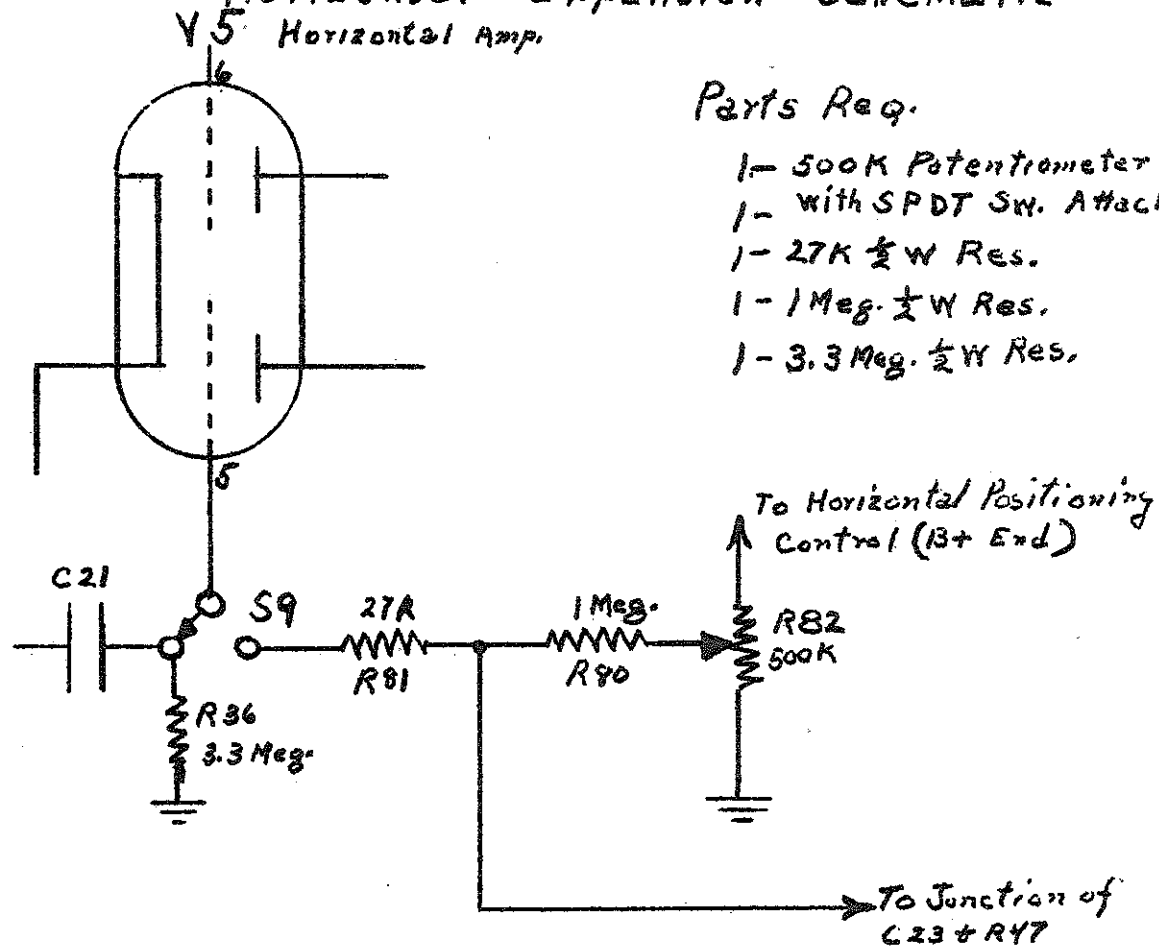 Horizontal Expansion Schematic
V5 Horizontal Amp.
6
Parts Req.
1- 500K Potentiometer
1- with SPDT Sw. Attac
1- 27K ½ W Res.
1- 1 Meg. ½ W Res.
1- 3.3 Meg. ½ W Res.
5
To Horizontal Positioning
Control (B+ End)
C21
S9
27K
R81
1 Meg.
R80
R82
500K
R36
3.3 Meg.
To Junction of
C23 & R47